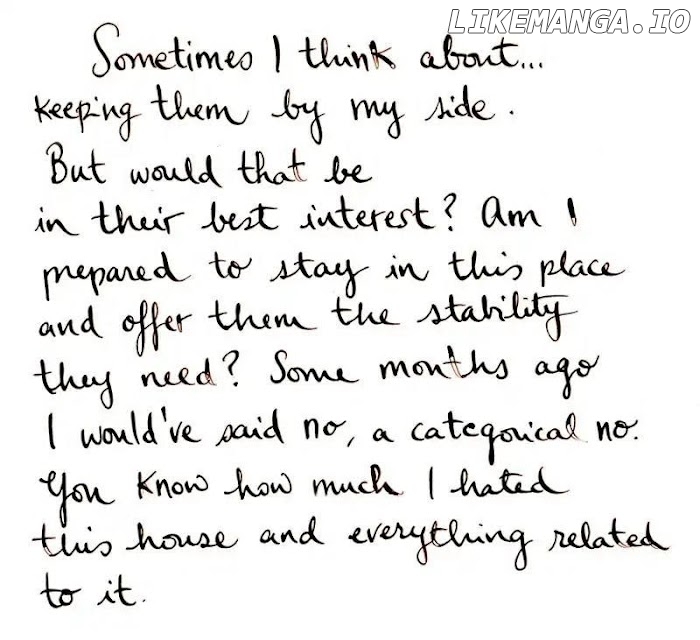 LIKEMANGA.IO
Sometimes I think about...
keeping them by my side.
But would that be
in their best interest? Am I
prepared to stay in this place
and offer them the stability
they need? Some months ago
I would've said no, a categorical no.
You know how much I hated
this house and everything related
to it.